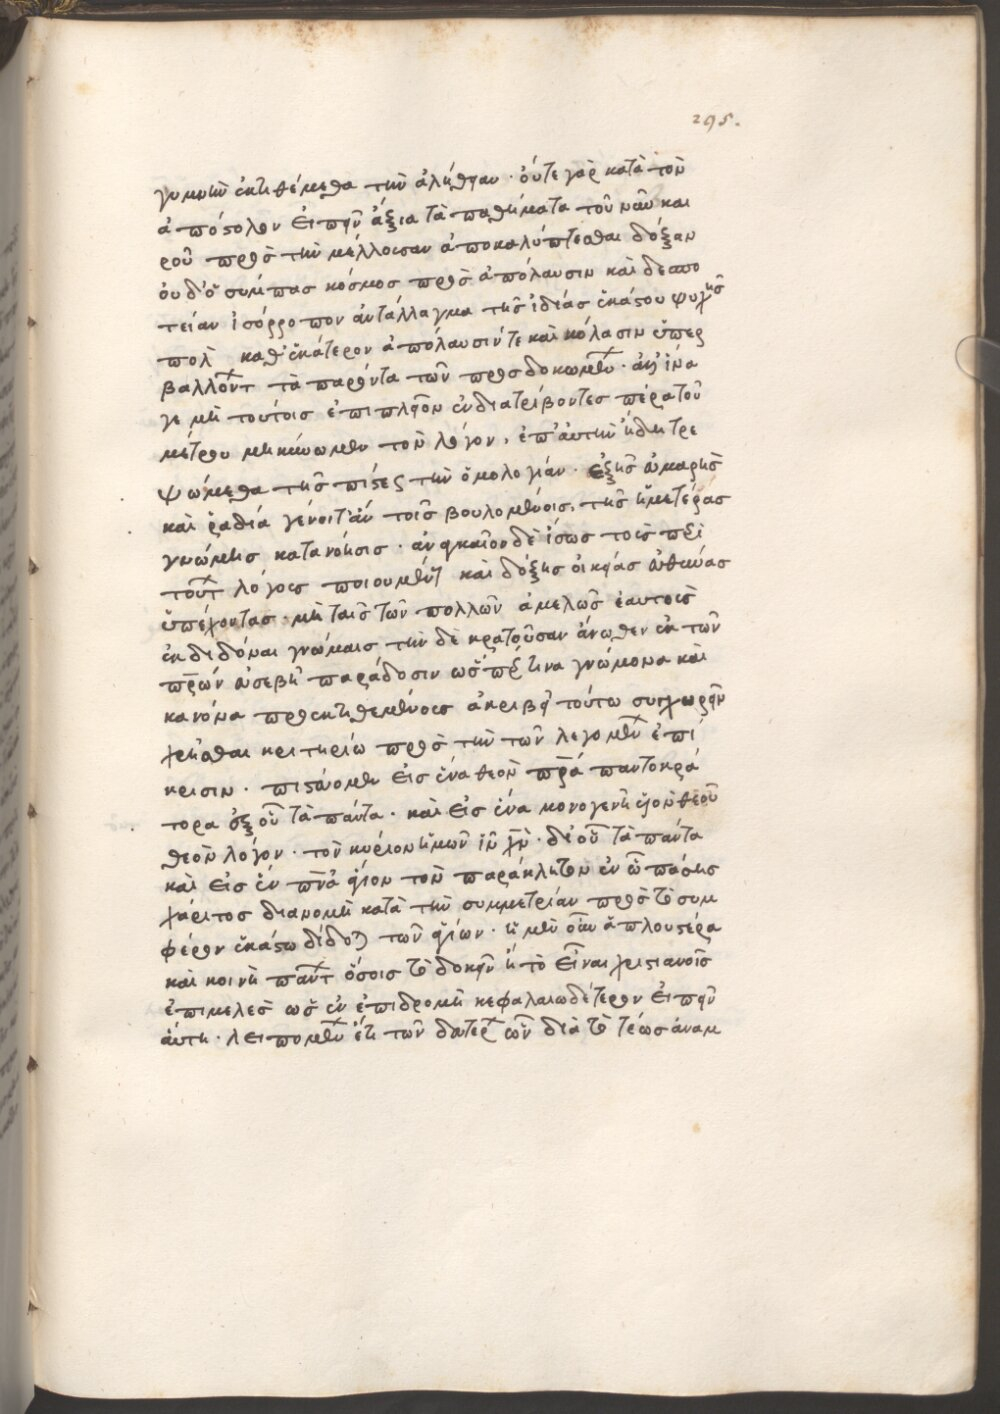 295.
γυμνὴν ἐκτιθέμεθα τὴν ἀλήθειαν · οὔτε γὰρ κατὰ τὸν
ἀπόστολον εἰπεῖν ἄξια τὰ παθήματα τοῦ νῦν και
ροῦ πρὸς τὴν μέλλουσαν ἀποκαλύπτεσθαι δόξαν
οὐδ' ὁ σύμπας κόσμος πρὸς ἀπόλαυσιν καὶ δεσπο
τείαν ἰσόρροπον ἀντάλλαγμα τῆς ἰδίας ἑκάστου ψυχῆς
πολ καθ' ἑκάτερον ἀπόλαυσίν τε καὶ κόλασιν ὑπερ
βαλλόντ τὰ παρόντα τῶν προσδοκωμέν · ἀλλ' ἵνα
γε μὴ τούτοις ἐπιπλεῖον ἐνδιατρίβοντες πέρα τοῦ
μέτρου μηκύνωμεν τὸν λόγον, ἐπ' αὐτὴν ἤδη τρε
ψώμεθα τῆς πίστεως τὴν ὁμολογίαν · ἐξ ἧς εὐμαρὴς
καὶ ῥαδία γένοιτ' ἂν τοῖς βουλομένοις, τῆς ἡμετέρας
γνώμης κατανόησις · ἀναγκαῖον δὲ ἴσως τοῖς περὶ
τούτ λόγοις ποιουμέν καὶ δόξης οἰκείας εὐθύνας
ὑπέχοντας · μὴ ταῖς τῶν πολλῶν ἀμελῶς ἑαυτοὺς
ἐκδιδόναι γνώμαις τὴν δὲ κρατοῦσαν ἄνωθεν ἐκ τῶν
πρων εὐσεβῆ παράδοσιν ὥσπερ τινα γνώμονα καὶ
κανόνα προεκτιθεμένους ἀκριβεῖ τούτω συγχωρεῖν
χρῆσθαι κριτηρίω πρὸς τὴν τῶν λεγομέν ἐπί
κρισιν · πιστεύομεν εἰς ἕνα θεὸν πρα παντοκρά
τορα ἐξ οὗ τὰ πάντα · καὶ εἰς ἕνα μονογενῆ υἱὸν θεοῦ
θεὸν λόγον · τὸν κύριον ἡμῶν ιν χν · δι' οὗ τὰ πάντα
καὶ εἰς ἓν πνα ἅγιον τὸν παράκλητον ἐν ᾧ πάσης
χάριτος διανομὴ κατὰ τὴν συμμετρίαν πρὸς τὸ συμ
φέρον ἑκάστω δίδοται τῶν ἁγίων · ἡ μὲν οὖν ἁπλουστέρα
καὶ κοινὴ παντ ὅσοις τὸ δοκεῖν ἢ τὸ εἶναι χριστιανοῖς
ἐπιμελὲς ὡς ἐν ἐπιδρομῆ κεφαλαιωδέστερον εἰπεῖν
αὕτη · λειπομέν ἔτι τῶν δευτέρ ὧν διὰ τὸ τέως ἀναμ